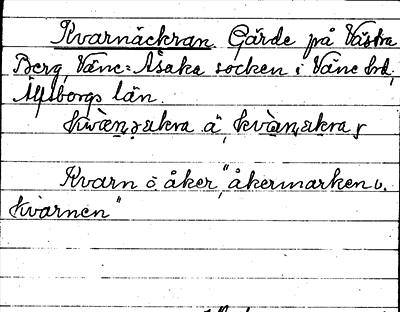 Kvarnäckran. Gärde på Västra
Berg, Väne-Åsaka socken i Väne hrd,
Älfsborgs län.
Kvarn o. åker, "åkermarken v.
kvarnen"